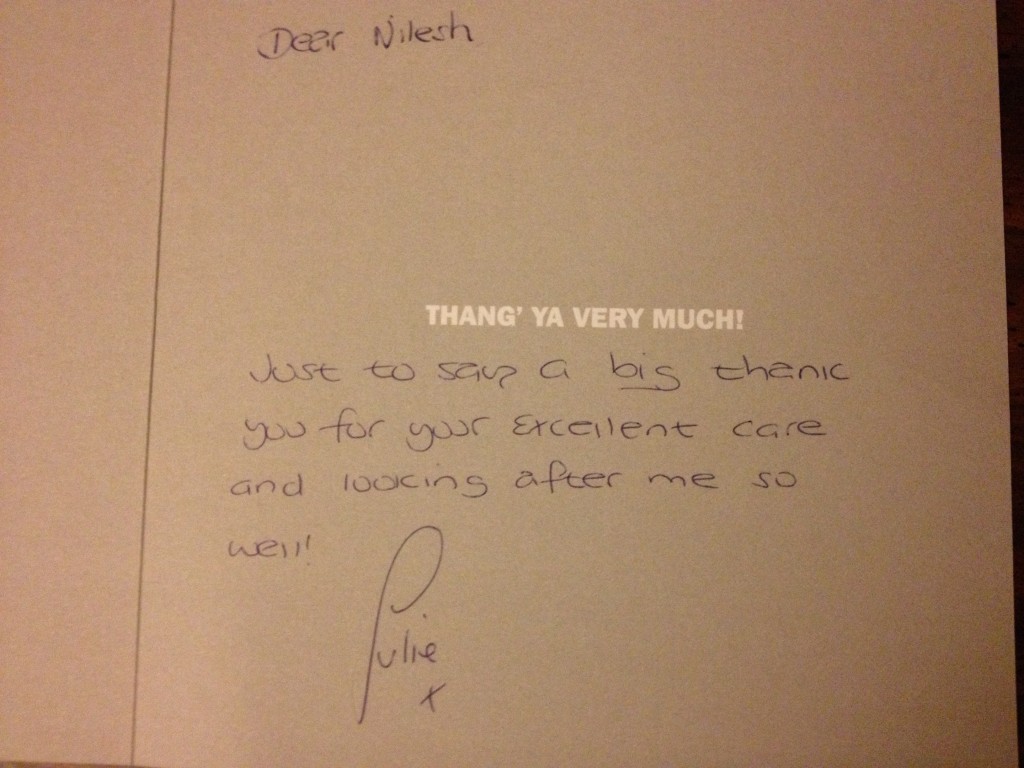 Dear Nilesh
THANG' YA VERY MUCH!
Just to say a big thank
you for your excellent care
and looking after me so
well!
Julie
x